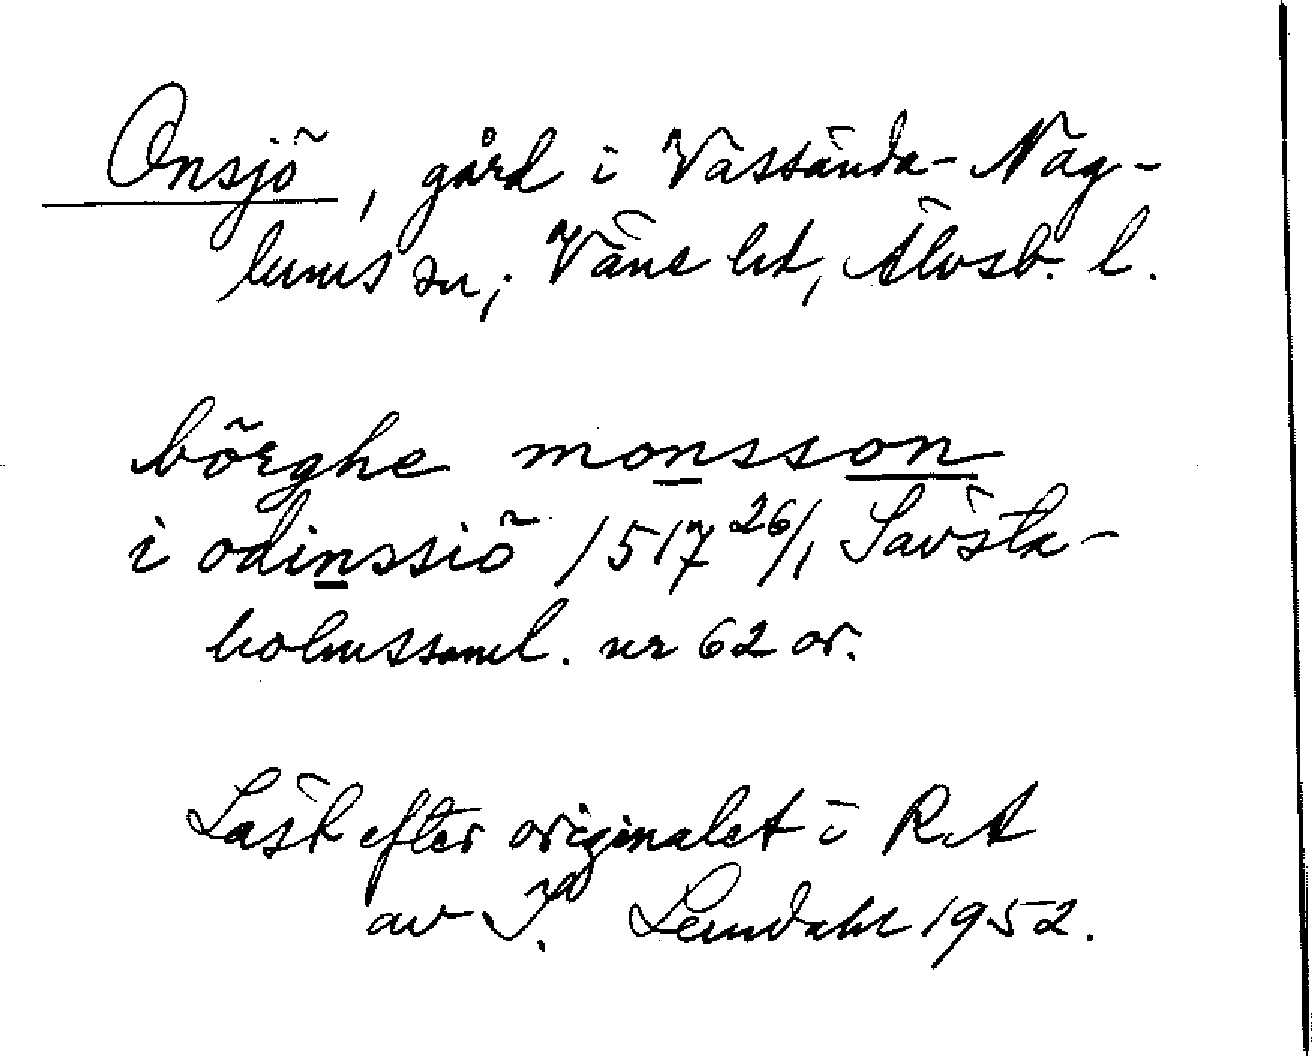 Onsjö, gård i Vassända-Näg-
lums sn; Väne hd, Älvsb. l.
börghe monsson
i odinssiö 1517 26/1 Sävsta-
holmssaml. nr 62 or.
Läst efter originalet i RA
av I. Lundahl 1952.